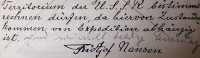 Territorium der U.S.S.R. bestimmt
rechnen dürfen, da hiervon Zustande-
kommen von Expedition abhängig
ist.
Fridtjof Nansen